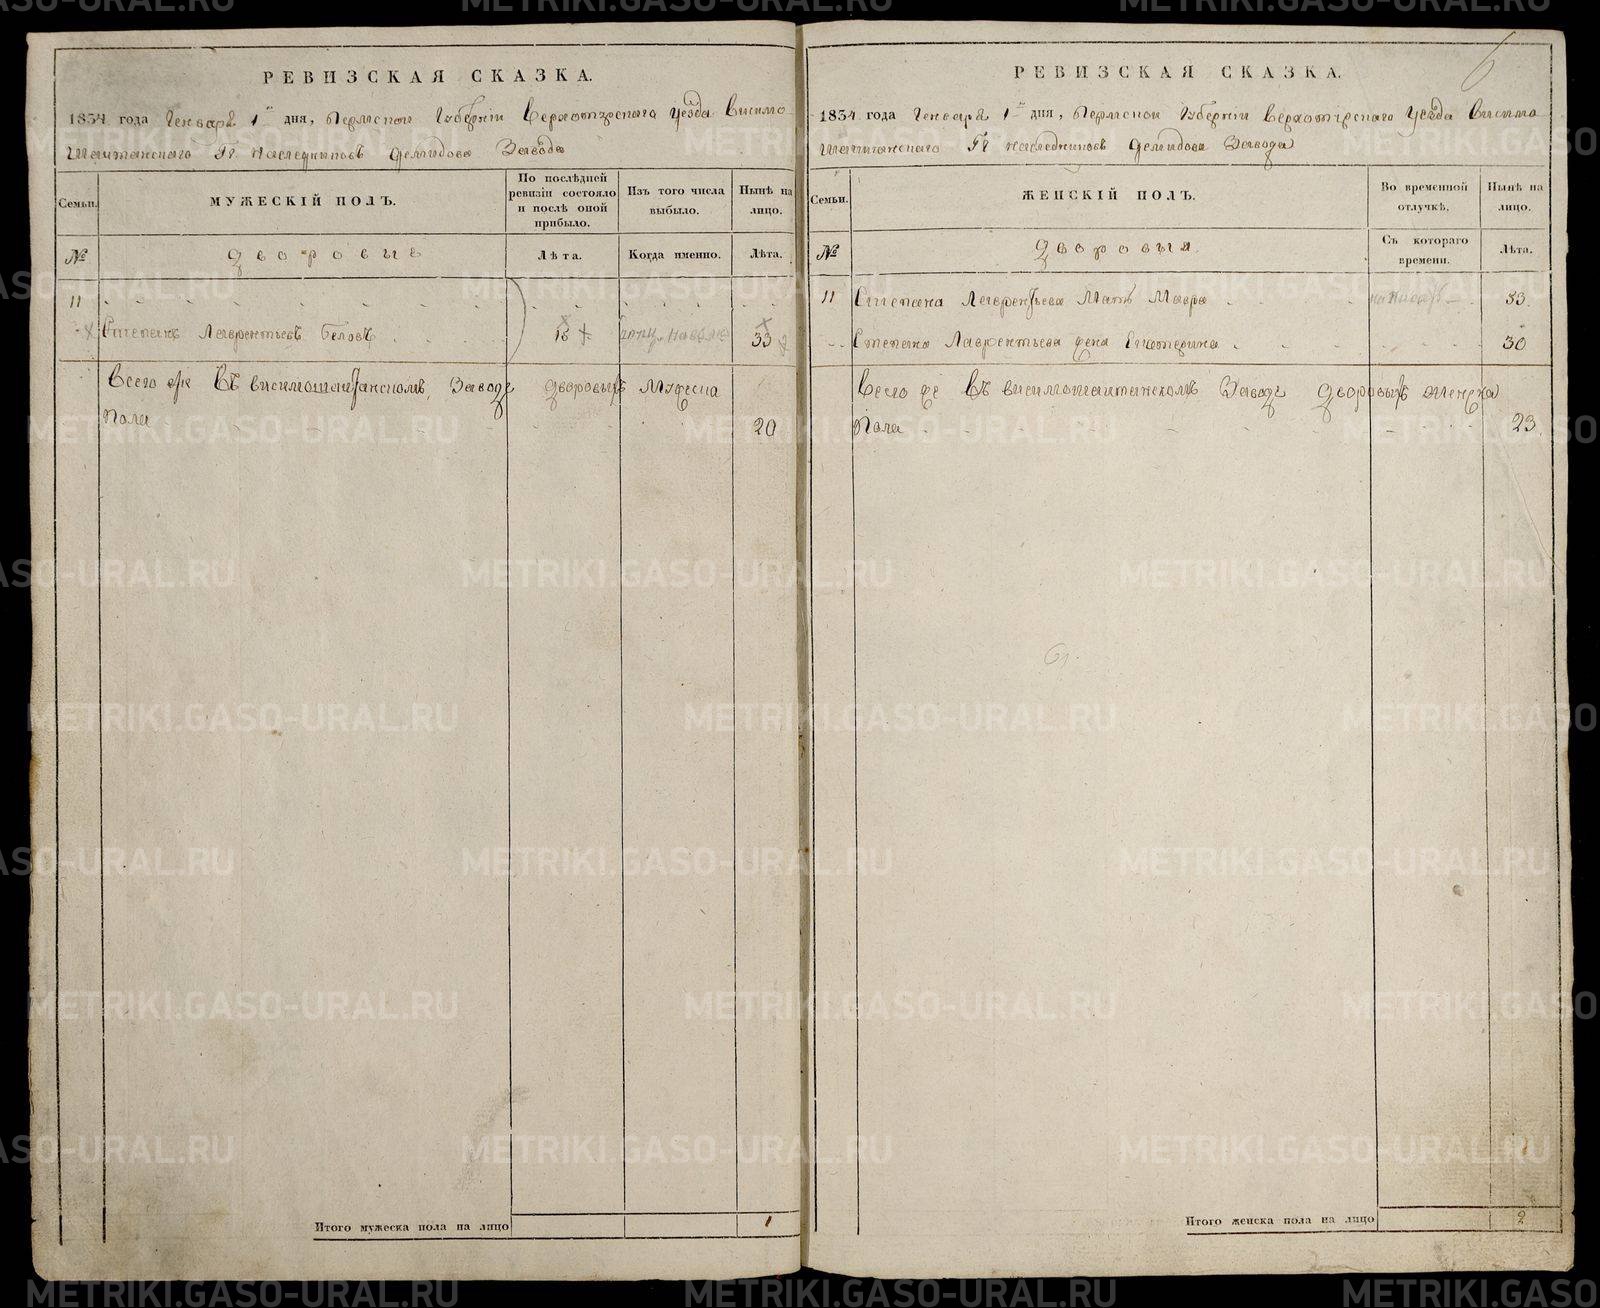 РЕВИЗСКАЯ СКАЗКА.
1834 года Генваря 1го дня, Пермской Губернии Верхотурского уезда Висимо
Шайтанского Гг наследников Демидова Завода
Семьи.
МУЖЕСКІЙ ПОЛЪ.
По послѣдней ревизіи состояло и послѣ оной прибыло.
Изъ того числа выбыло.
Нынѣ на лицо.
№
Дворовые
Лѣта.
Когда именно.
Лѣта.
11
Степанъ Лаврентьевъ Беловъ 33
Всего же Въ висимошайтанскомъ Заводе дворовыхъ Мужеска
Пола 20
Итого мужеска пола на лицо 1
РЕВИЗСКАЯ СКАЗКА.
6
1834 года Генваря 1го дня, Пермской Губернии Верхотурского уезда Висимо
Шайтанского Гг наследников Демидова Завода
Семьи.
ЖЕНСКІЙ ПОЛЪ.
Во временной отлучкѣ.
Нынѣ на лицо.
№
Дворовыя
Съ котораго времени.
Лѣта.
11 Степана Лаврентьева Мать Мавра 53
Степана Лаврентьева жена Екатерина 30
Всего же Въ висимошайтанскомъ Заводе дворовыхъ женска
Пола 23
Итого женска пола на лицо 2
METRIKI.GASO-URAL.RU